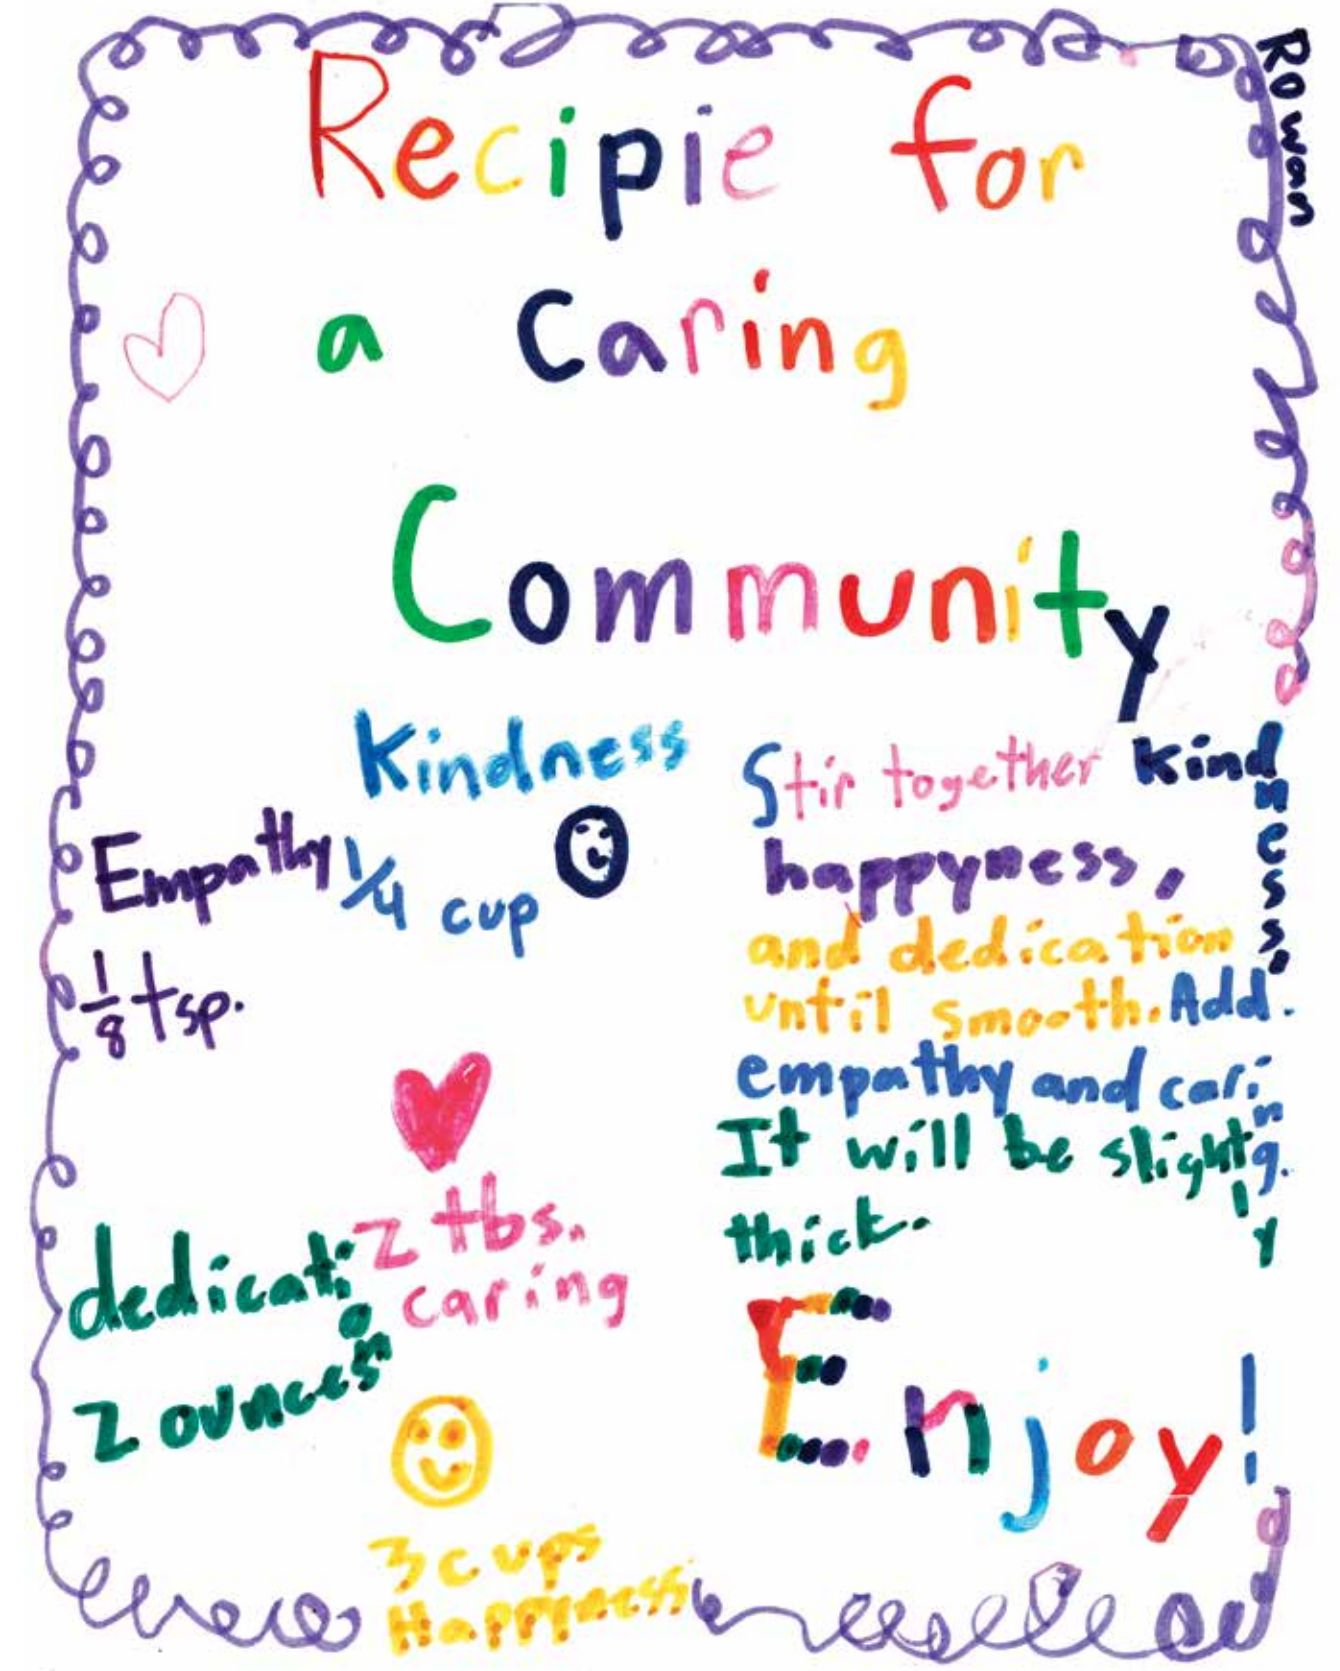 Rowan
Recipie for
a Caring
Community
Kindness
1/4 cup
Empathy
1/8 tsp.
2 tbs.
caring
dedication
2 ounces
3 cups
Happyness
Stir together kindness,
happyness,
and dedication
until smooth. Add.
empathy and caring.
It will be slightly
thick.
Enjoy!